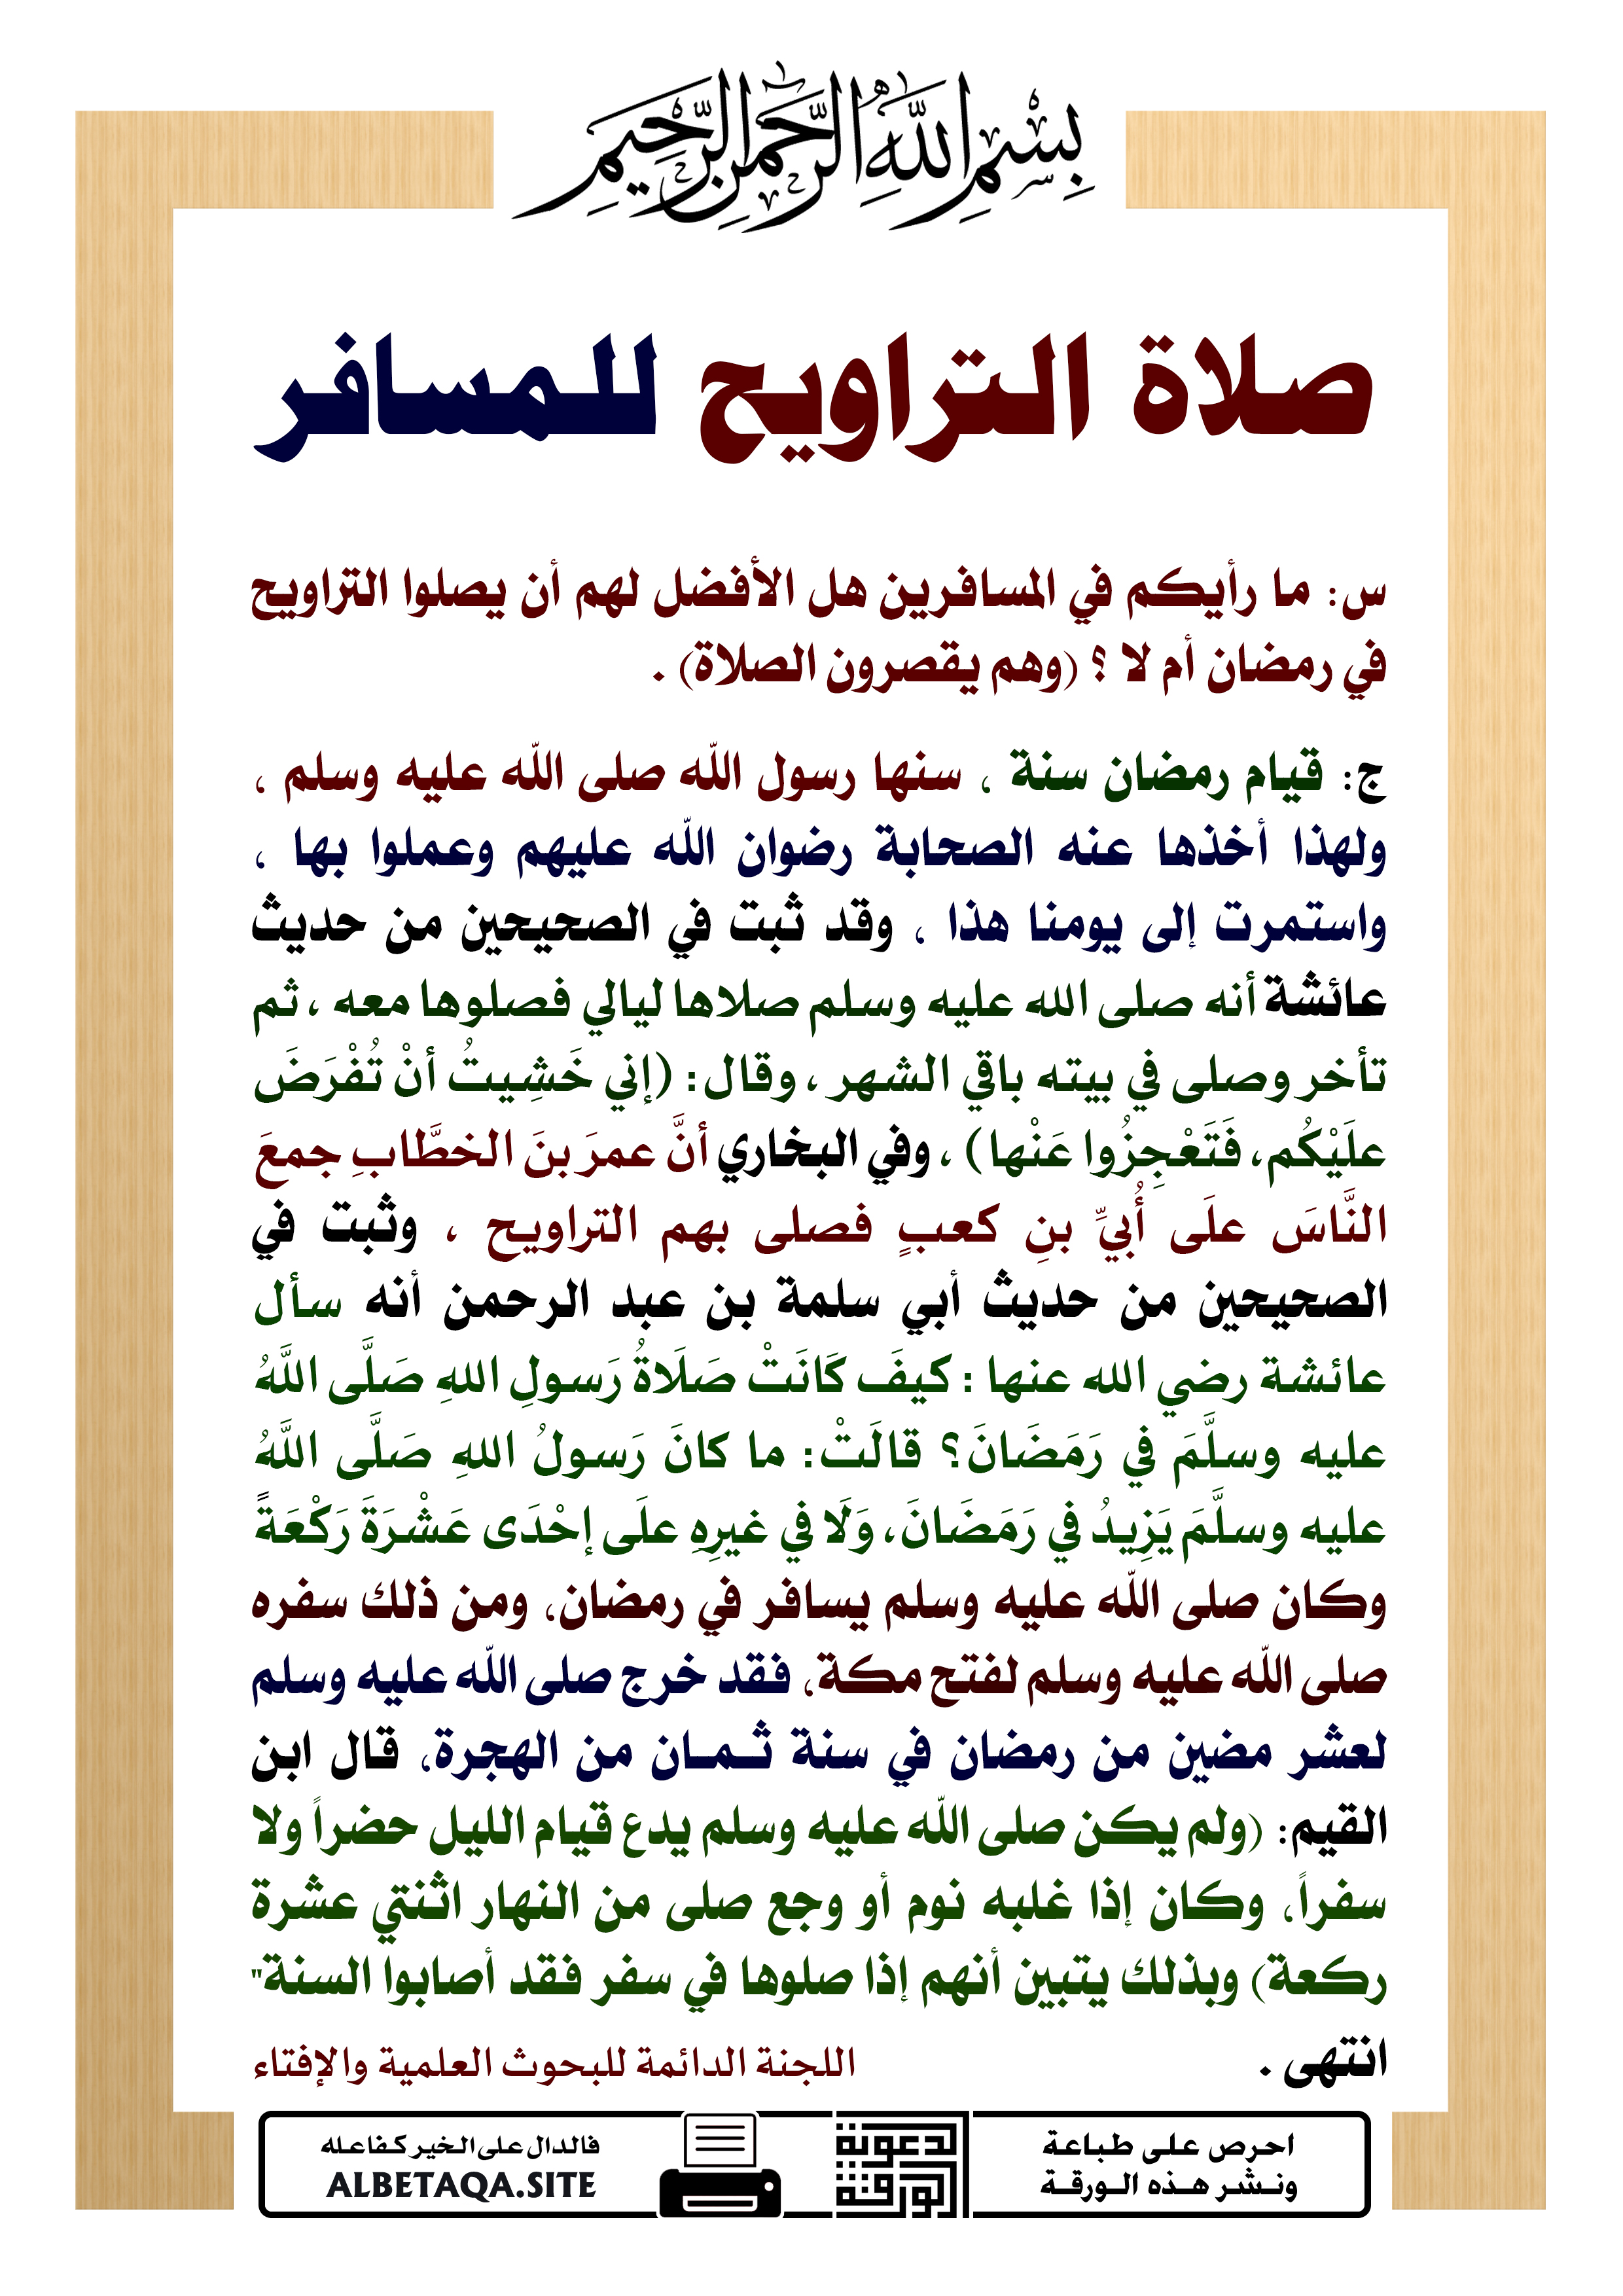 بِسْمِ اللَّهِ الرَّحْمَنِ الرَّحِيمِ
صلاة التراويح للمسافر
س: ما رأيكم في المسافرين هل الأفضل لهم أن يصلوا التراويح
في رمضان أم لا ؟ (وهم يقصرون الصلاة) .
ج: قيام رمضان سنة ، سنها رسول الله صلى الله عليه وسلم ،
ولهذا أخذها عنه الصحابة رضوان الله عليهم وعملوا بها ،
واستمرت إلى يومنا هذا ، وقد ثبت في الصحيحين من حديث
عائشة أنه صلى الله عليه وسلم صلاها ليالي فصلوها معه ، ثم
تأخر وصلى في بيته باقي الشهر ، وقال: (إني خَشِيتُ أنْ تُفْرَضَ
علَيْكُم، فَتَعْجِزُوا عَنْها) ، وفي البخاري أنَّ عمرَ بنَ الخطَّابِ جمعَ
النَّاسَ علَى أُبيِّ بنِ كعبٍ فصلى بهم التراويح ، وثبت في
الصحيحين من حديث أبي سلمة بن عبد الرحمن أنه سأل
عائشة رضي الله عنها : كيفَ كَانَتْ صَلَاةُ رَسولِ اللهِ صَلَّى اللَّهُ
عليه وسلَّمَ في رَمَضَانَ؟ قالَتْ: ما كانَ رَسولُ اللهِ صَلَّى اللَّهُ
عليه وسلَّمَ يَزِيدُ في رَمَضَانَ، وَلَا في غيرِهِ علَى إحْدَى عَشْرَةَ رَكْعَةً
وكان صلى الله عليه وسلم يسافر في رمضان، ومن ذلك سفره
صلى الله عليه وسلم لفتح مكة، فقد خرج صلى الله عليه وسلم
لعشر مضين من رمضان في سنة ثـمـان من الهجرة، قال ابن
القيم: (ولم يكن صلى الله عليه وسلم يدع قيام الليل حضراً ولا
سفراً، وكان إذا غلبه نوم أو وجع صلى من النهار اثنتي عشرة
ركعة) وبذلك يتبين أنهم إذا صلوها في سفر فقد أصابوا السنة"
انتهى .
اللجنة الدائمة للبحوث العلمية والإفتاء
احرص على طباعة
ونـشـر هـذه الـورقـة
الورقة الدعوية
فالدال على الخير كفاعله
ALBETAQA.SITE